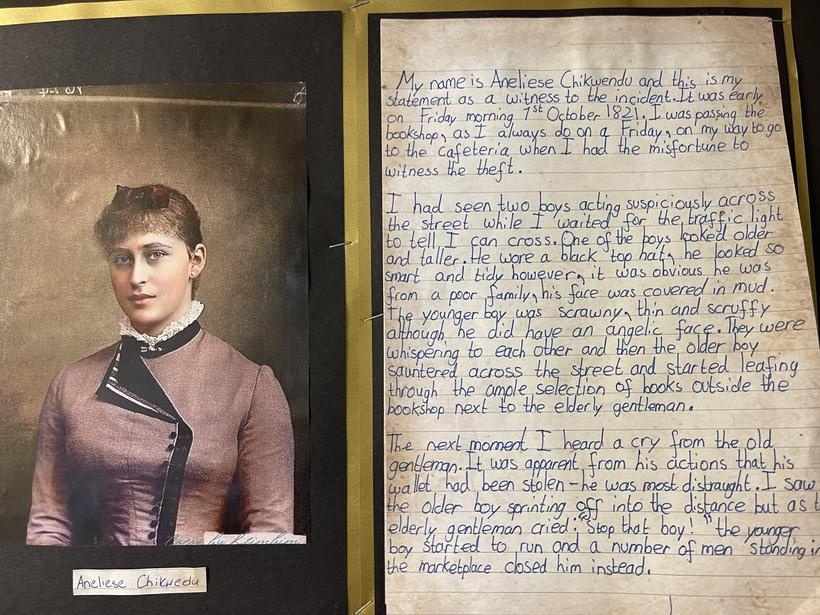 Aneliese Chikwedu
My name is Aneliese Chikwendu and this is my
statement as a witness to the incident. It was early
on Friday morning 1st October 1821. I was passing the
bookshop, as I always do on a Friday, on my way to go
to the cafeteria when I had the misfortune to
witness the theft.
I had seen two boys acting suspiciously across
the street while I waited for the traffic light
to tell I can cross. One of the boys looked older
and taller. He wore a black top hat, he looked so
smart and tidy however, it was obvious he was
from a poor family, his face was covered in mud.
The younger boy was scrawny, thin and scruffy
although he did have an angelic face. They were
whispering to each other and then the older boy
sauntered across the street and started leafing
through the ample selection of books outside the
bookshop next to the elderly gentleman.
The next moment I heard a cry from the old
gentleman. It was apparent from his actions that his
wallet had been stolen - he was most distraught. I saw
the older boy sprinting off into the distance but as t
elderly gentleman cried: "Stop that boy!" the younger
boy started to run and a number of men standing in
the marketplace closed him instead.